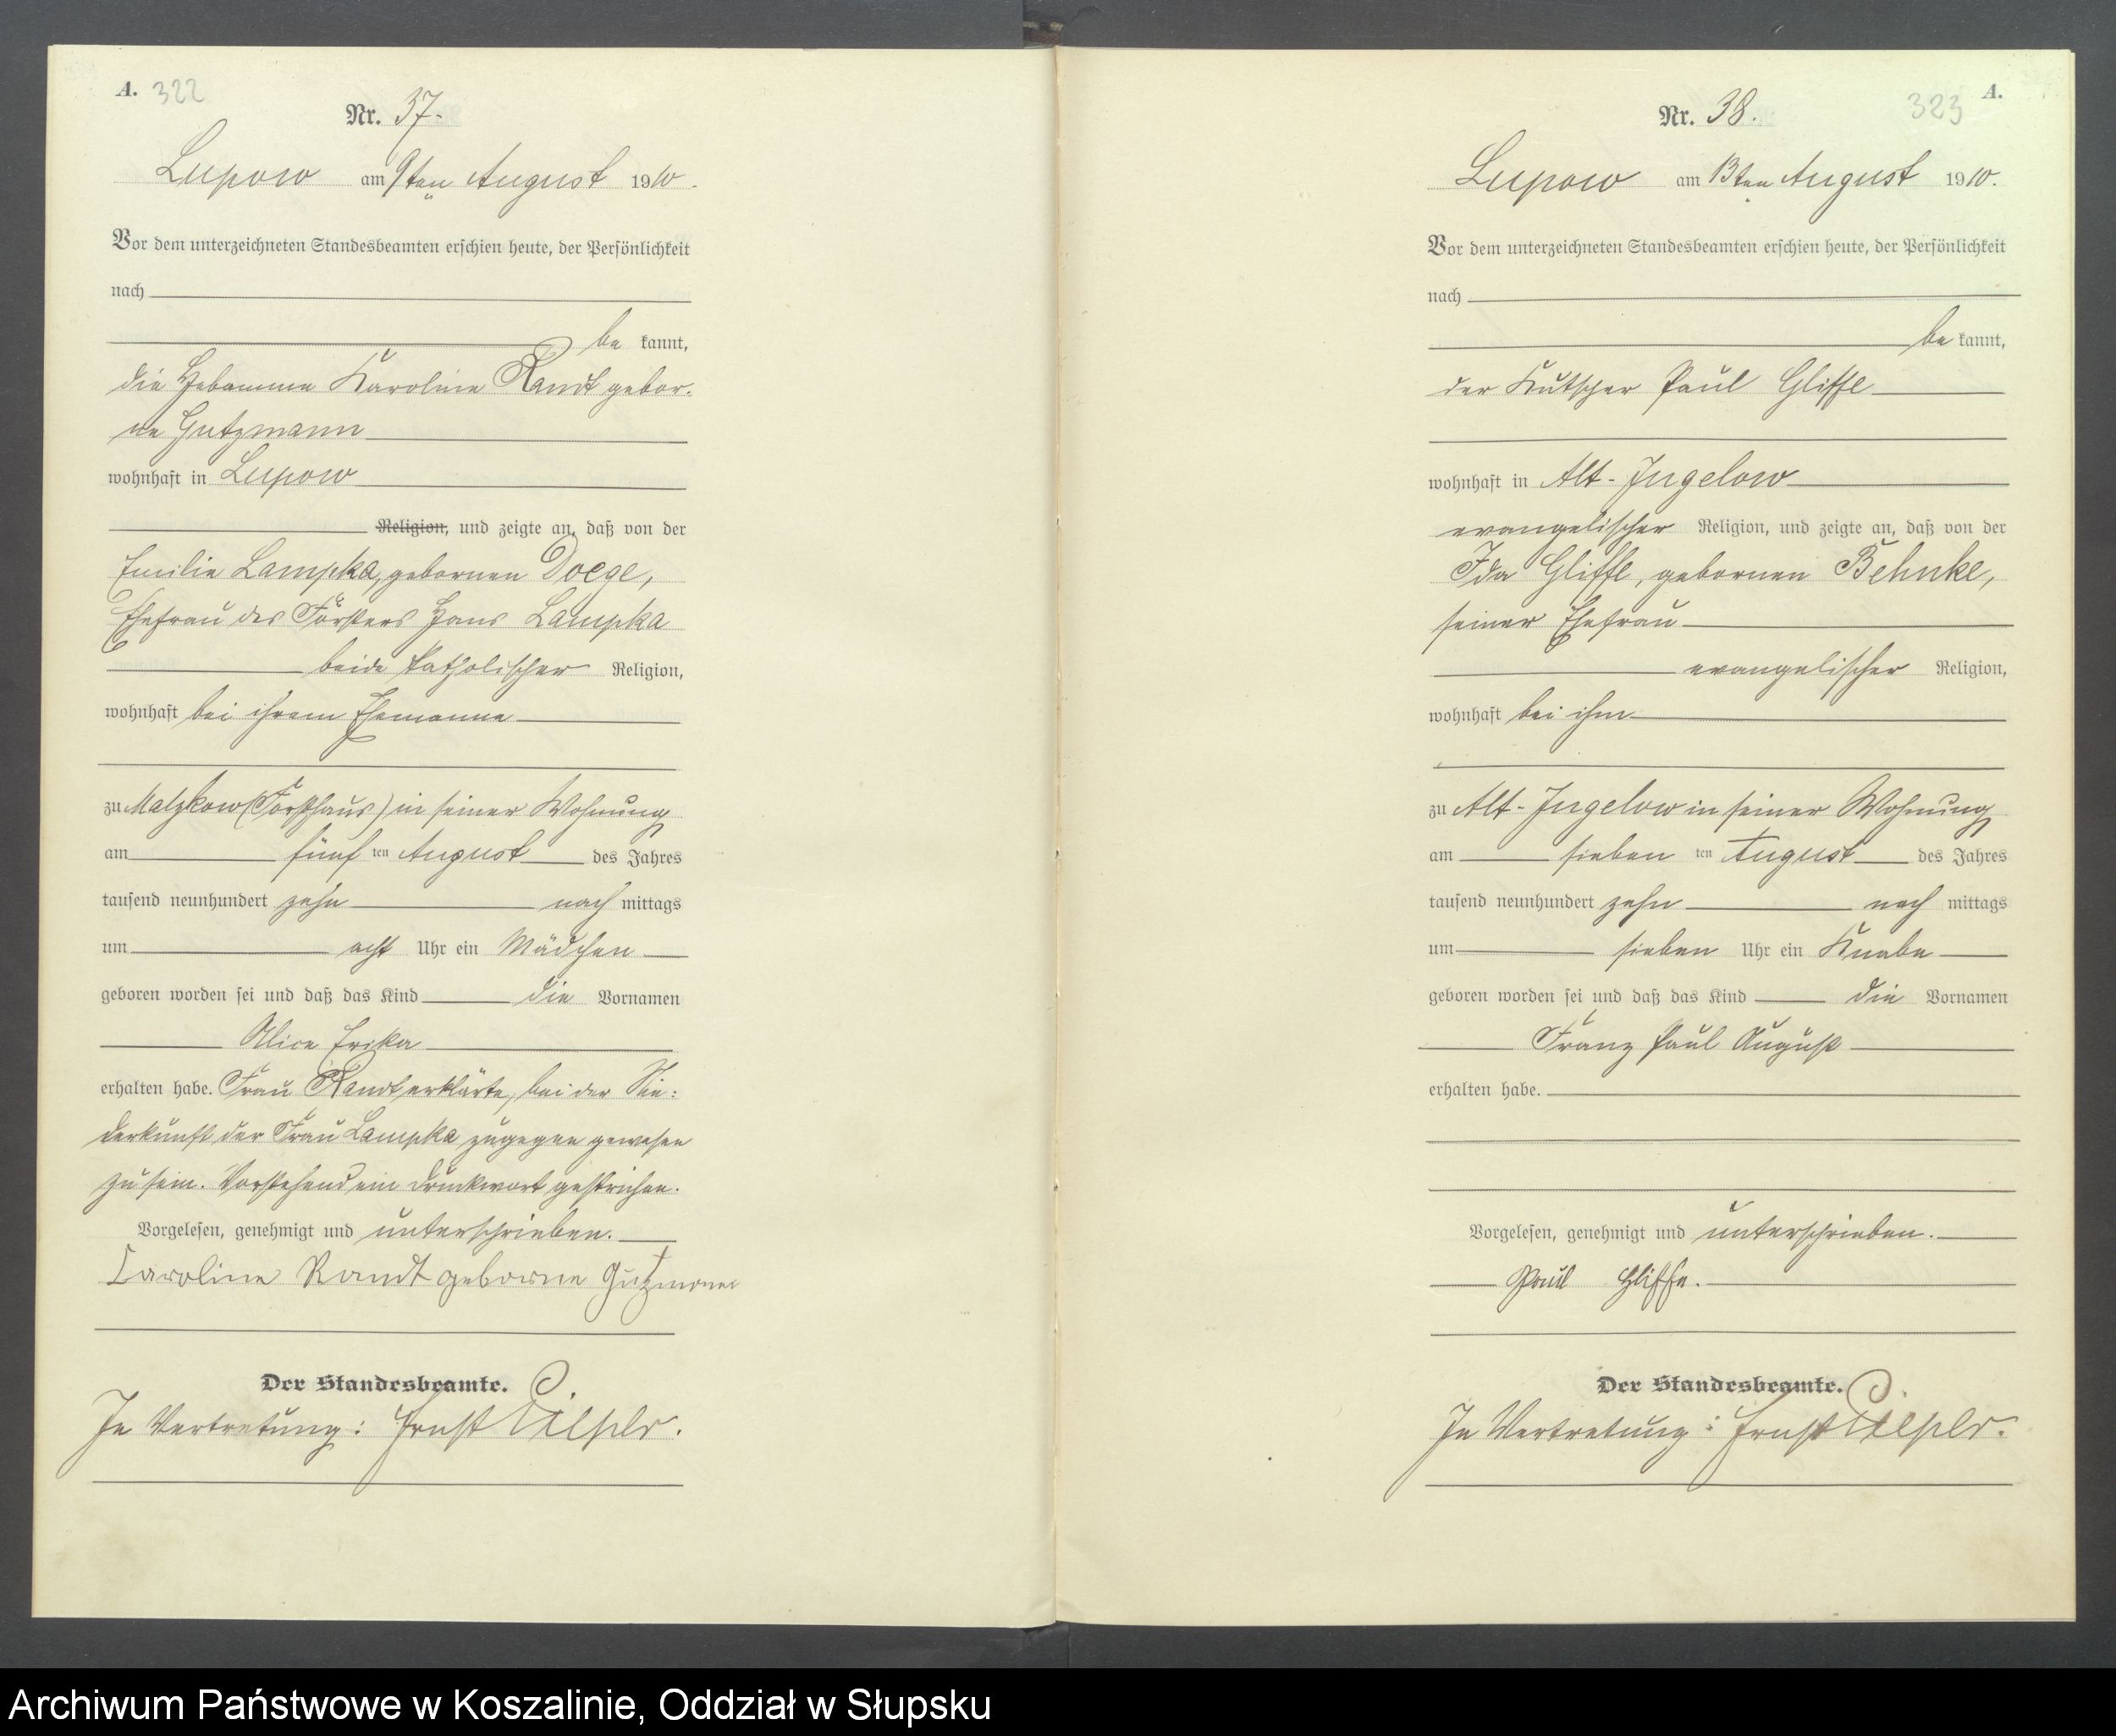 A. 322
Nr. 37.
Lupow am 9ten August 1910.
Vor dem unterzeichneten Standesbeamten erschien heute, der Persönlichkeit
nach
be kannt,
die Hebamme Karoline Randt gebor-
ne Gutzmann
wohnhaft in Lupow
Religion, und zeigte an, daß von der
Emilie Lampka, gebornen Doege,
Ehefrau des Försters Hans Lampka
beide katholischer Religion,
wohnhaft bei ihrem Ehemanne
zu Malzkow (Forsthaus) in seiner Wohnung
am fünf ten August des Jahres
tausend neunhundert zehn nach mittags
um acht Uhr ein Mädchen
geboren worden sei und daß das Kind die Vornamen
Alice Erika
erhalten habe. Frau Randt erklärte, bei der Nie-
derkunft der Frau Lampka zugegen gewesen
zu sein. Vorstehend ein Druckwort gestrichen.
Vorgelesen, genehmigt und unterschrieben.
Caroline Randt geborne Gutzmann
Der Standesbeamte.
In Vertretung: Ernst
323 A.
Nr. 38.
Lupow am 13ten August 1910.
Vor dem unterzeichneten Standesbeamten erschien heute, der Persönlichkeit
nach
be kannt,
der Kutscher Paul Gliffe
wohnhaft in Alt-Jugelow
evangelischer Religion, und zeigte an, daß von der
Ida Gliffe, gebornen Behnke,
seiner Ehefrau
evangelischer Religion,
wohnhaft bei ihm
zu Alt-Jugelow in seiner Wohnung
am sieben ten August des Jahres
tausend neunhundert zehn nach mittags
um sieben Uhr ein Knabe
geboren worden sei und daß das Kind die Vornamen
Franz Paul August
erhalten habe.
Vorgelesen, genehmigt und unterschrieben.
Paul Gliffe.
Der Standesbeamte.
In Vertretung: Ernst
Archiwum Państwowe w Koszalinie, Oddział w Słupsku